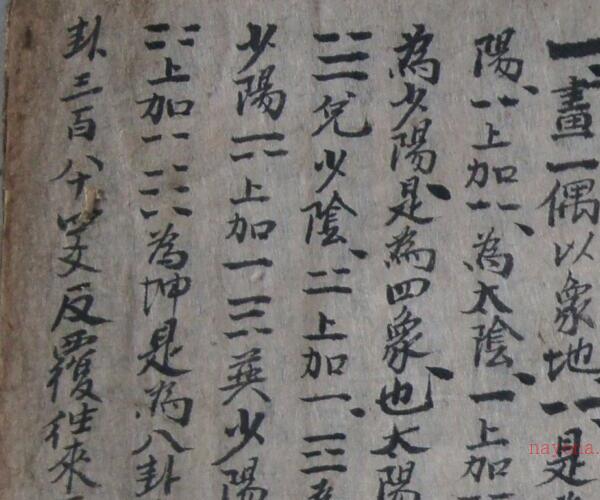 一、畫一偶以象地、⚋是
陽、⚋上加⚋、為太陰、一上加
為少陽、是為四象、也、太陽
☱兌少陰、上加一、
少陽上加一少陽
⚏上加⚋☷為坤是為八卦
卦三百八十四爻反覆往來
nayona.